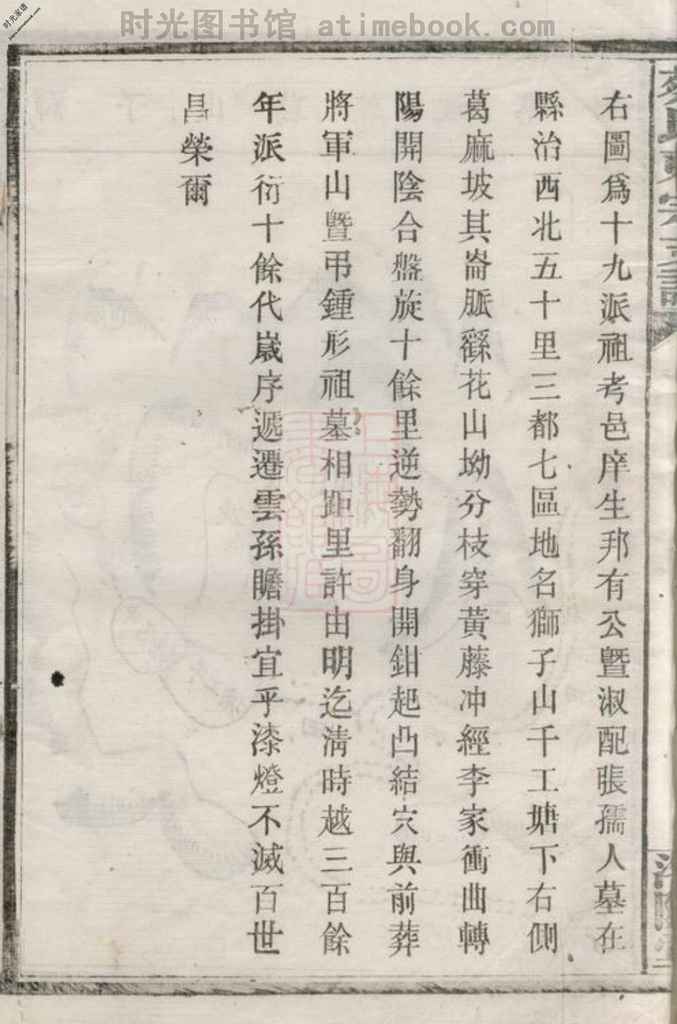 时光图书馆 atimebook.com
时光家谱
右圖爲十九派祖考邑庠生邦有公暨淑配張孺人墓在
縣治西北五十里三都七區地名獅子山千工塘下右側
葛麻坡其崙脈繇花山坳分枝穿黃藤冲經李家衝曲轉
陽開陰合盤旋十餘里逆勢翻身開鉗起凸結穴與前葬
將軍山暨弔鍾形祖墓相距里許由明迄淸時越三百餘
年派衍十餘代歲序遞遷雲孫瞻掛宜乎漆燈不滅百世
昌榮爾